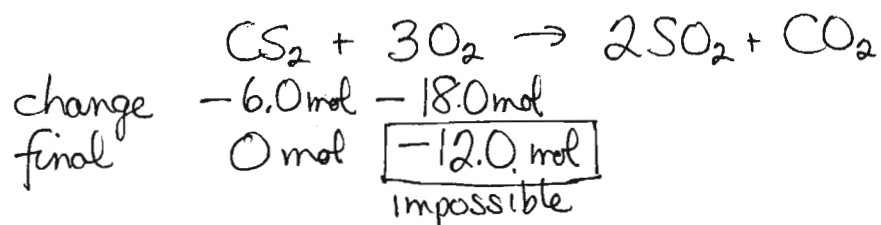 CS₂ + 3O₂ → 2SO₂ + CO₂
change -6.0 mol -18.0 mol
final 0 mol -12.0 mol
impossible